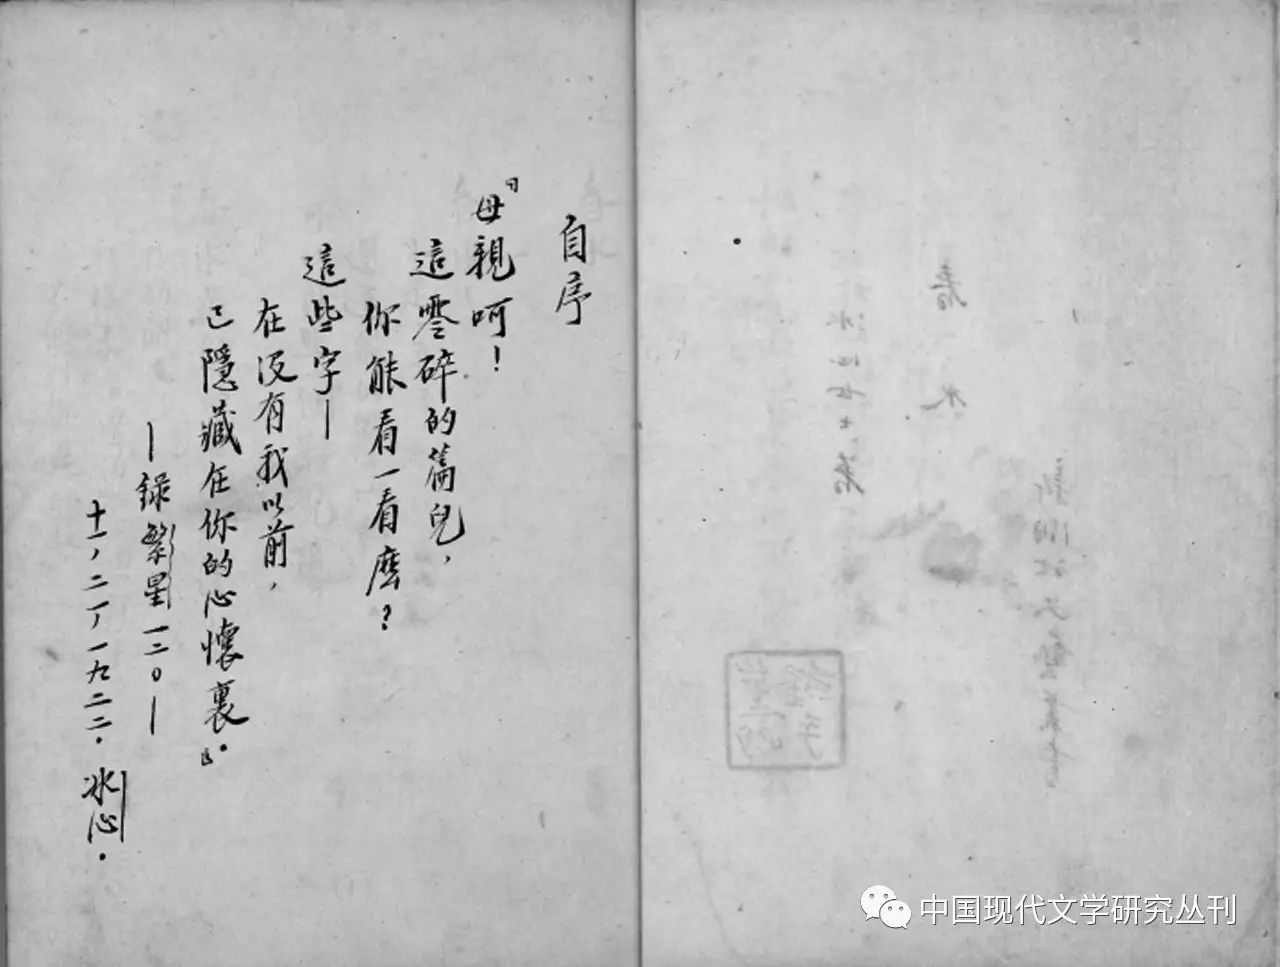 新潮社文藝叢書
春水
冰心女士著
自序
『母親呵！
這零碎的篇兒，
你能看一看麼？
這些字—
在沒有我以前，
已隱藏在你的心懷裏』．
—錄繁星一二〇—
十一，二一，一九二二．冰心．
中国现代文学研究丛刊